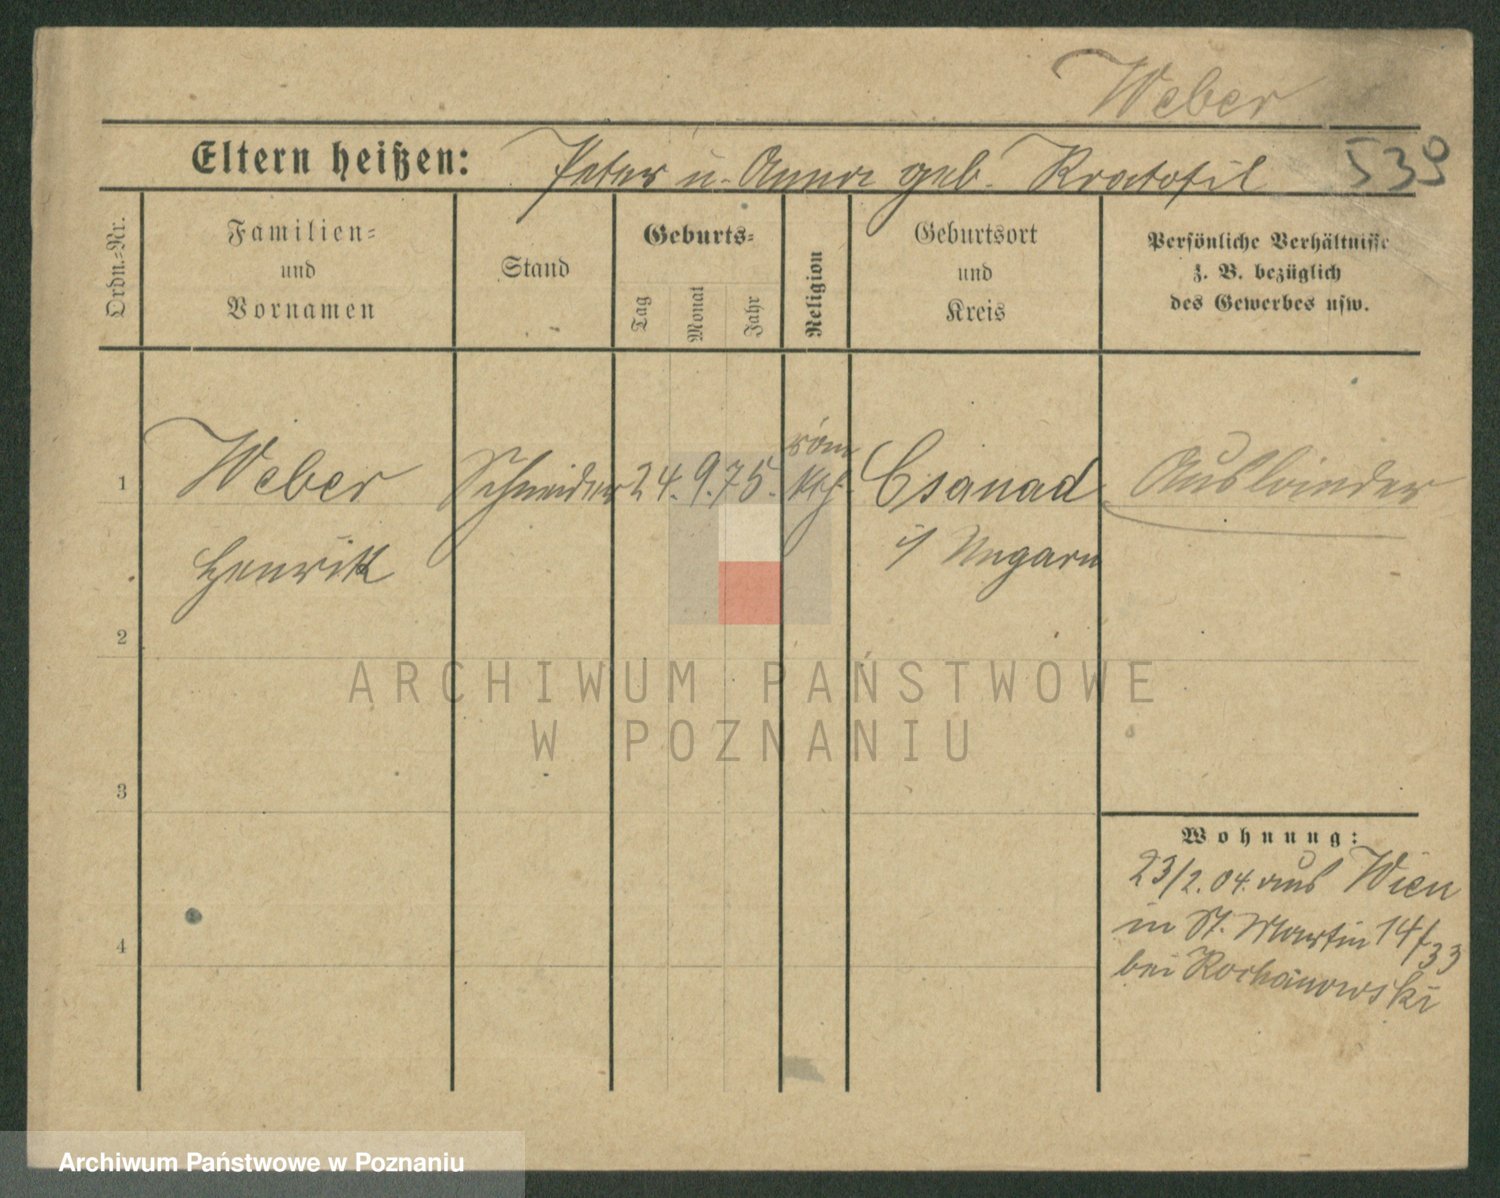 Weber
Eltern heißen: Peter u. Anna geb. Kratofil 539
Ordn.=Nr.
Familien=
und
Vornamen
Stand
Geburts=
Tag
Monat
Jahr
Religion
Geburtsort
und
Kreis
Persönliche Verhältnisse
z. B. bezüglich
des Gewerbes usw.
1 Weber Schneider 24. 9. 75. röm Csanad Ausländer
Henrik i/ Ungarn
2
3
4
Wohnung:
23/2. 04. aus Wien
in St. Martin 14/33
bei Kochanowski
ARCHIWUM PAŃSTWOWE
W POZNANIU
Archiwum Państwowe w Poznaniu